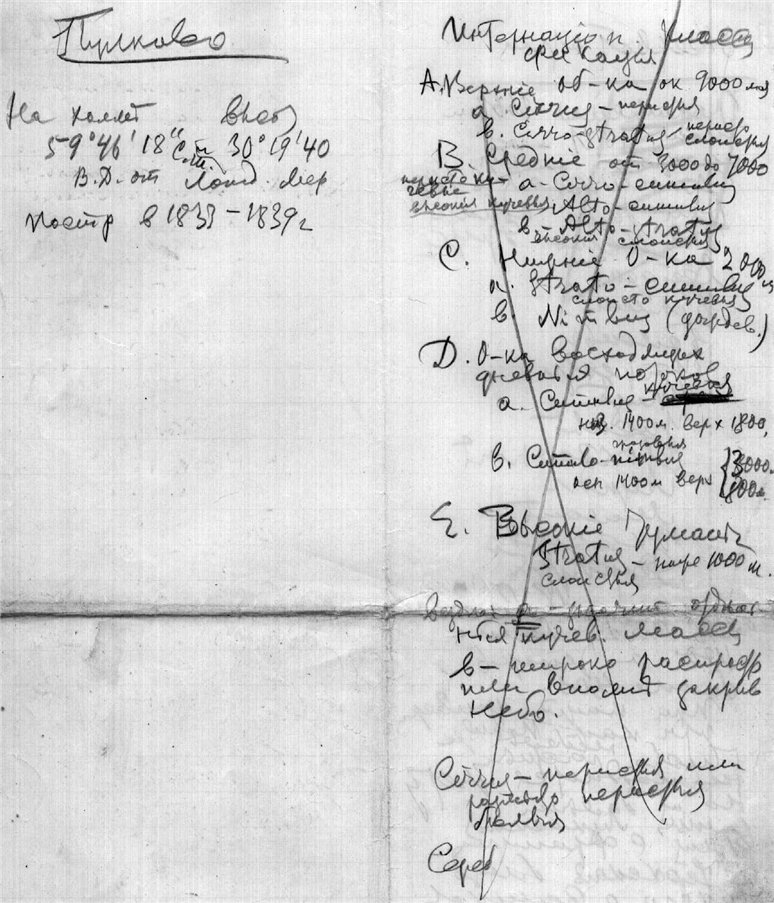 Пулково
На холме высот
59°46'18" с.ш. 30°19'40
В.Д. от Лонд. мер
постр в 1833-1839 г
Интернацион. класси
фикация
А. Верхніе об-ка ок 9000 м
а. Cirrus - перистыя
в. Cirro-stratus перисто
слоистыя
В. Средніе от 3000 до 7000
перисто ку-
чевые
а. Cirro-cumulus
высокія кучевыя Alto-cumulus
в. Alto-stratus
высокія слоистыя
С. Нижніе о-ка 2000
а. Strato-cumulus
слоисто кучевыя
в. Nimbus (дождев.)
D. О-ка восходящих
дневных потоков
а. Cumulus - кучевыя
1400 м. верх 1800,
в. Cumulo-nimbus
грозовыя
осн 1400 м верх {3000 м
8000 м.
Е. Высокіе Туманы
Stratus - ниже 1000 м.
слоистыя
кучев. масс
в - широко распростр
или вполне закрыв
небо.
Cirrus - перистыя или
перистыя